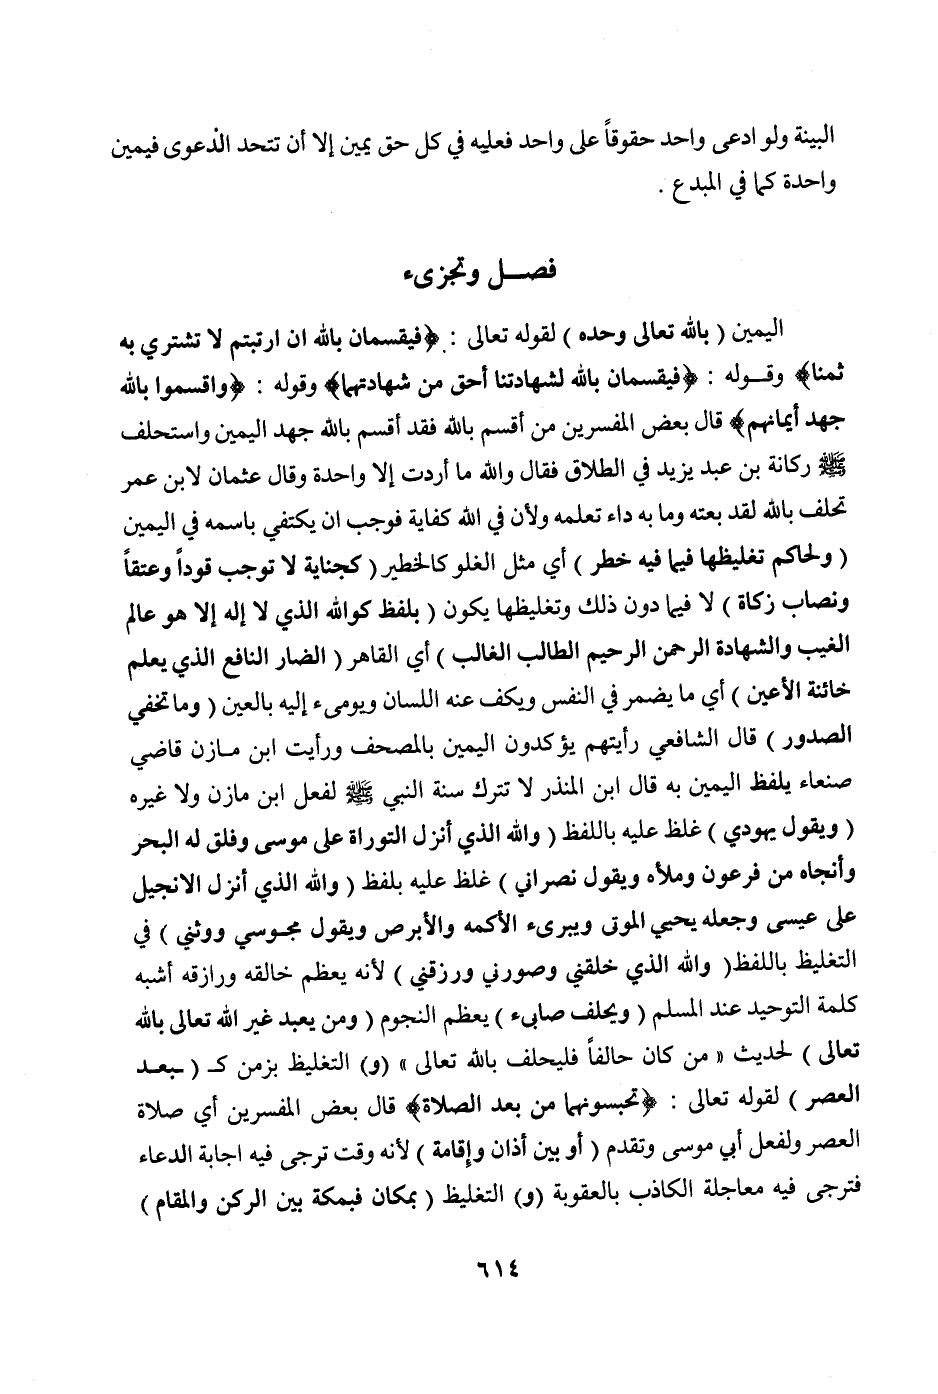 البينة ولو ادعى واحد حقوقاً على واحد فعليه في كل حق يمين إلا أن تتحد الدعوى فيمين
واحدة كما في المبدع .
فصل وتجزىء
اليمين ( بالله تعالى وحده ) لقوله تعالى : ﴿فيقسمان بالله ان ارتبتم لا تشتري به
ثمنا﴾ وقوله : ﴿فيقسمان بالله لشهادتنا أحق من شهادتهما﴾ وقوله : ﴿واقسموا بالله
جهد أيمانهم﴾ قال بعض المفسرين من أقسم بالله فقد أقسم بالله جهد اليمين واستحلف
ﷺ ركانة بن عبد يزيد في الطلاق فقال والله ما أردت إلا واحدة وقال عثمان لابن عمر
تحلف بالله لقد بعته وما به داء تعلمه ولأن في الله كفاية فوجب ان يكتفي باسمه في اليمين
( ولحاكم تغليظها فيما فيه خطر ) أي مثل الغلو كالخطير ( كجناية لا توجب قوداً وعتقاً
ونصاب زكاة ) لا فيما دون ذلك وتغليظها يكون ( بلفظ كوالله الذي لا إله إلا هو عالم
الغيب والشهادة الرحمن الرحيم الطالب الغالب ) أي القاهر ( الضار النافع الذي يعلم
خائنة الأعين ) أي ما يضمر في النفس ويكف عنه اللسان ويومىء إليه بالعين ( وما تخفي
الصدور ) قال الشافعي رأيتهم يؤكدون اليمين بالمصحف ورأيت ابن مازن قاضي
صنعاء يلفظ اليمين به قال ابن المنذر لا تترك سنة النبي ﷺ لفعل ابن مازن ولا غيره
( ويقول يهودي ) غلظ عليه باللفظ ( والله الذي أنزل التوراة على موسى وفلق له البحر
وأنجاه من فرعون وملأه ويقول نصراني ) غلظ عليه بلفظ ( والله الذي أنزل الانجيل
على عيسى وجعله يحيي الموتى ويبرىء الأكمه والأبرص ويقول مجوسي ووثني ) في
التغليظ باللفظ( والله الذي خلقني وصورني ورزقني ) لأنه يعظم خالقه ورازقه أشبه
كلمة التوحيد عند المسلم ( ويحلف صابىء ) يعظم النجوم ( ومن يعبد غير الله تعالى بالله
تعالى ) لحديث « من كان حالفاً فليحلف بالله تعالى » (و) التغليظ بزمن كـ ( ـبعد
العصر ) لقوله تعالى : ﴿تحبسونهما من بعد الصلاة﴾ قال بعض المفسرين أي صلاة
العصر ولفعل أبي موسى وتقدم ( أو بين أذان وإقامة ) لأنه وقت ترجى فيه اجابة الدعاء
فترجى فيه معاجلة الكاذب بالعقوبة (و) التغليظ ( بمكان فبمكة بين الركن والمقام )
٦١٤